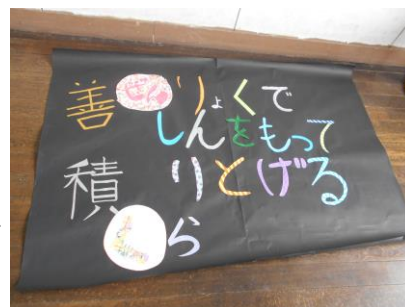 善 りょくで
しんをもって
積 りとげる
ら